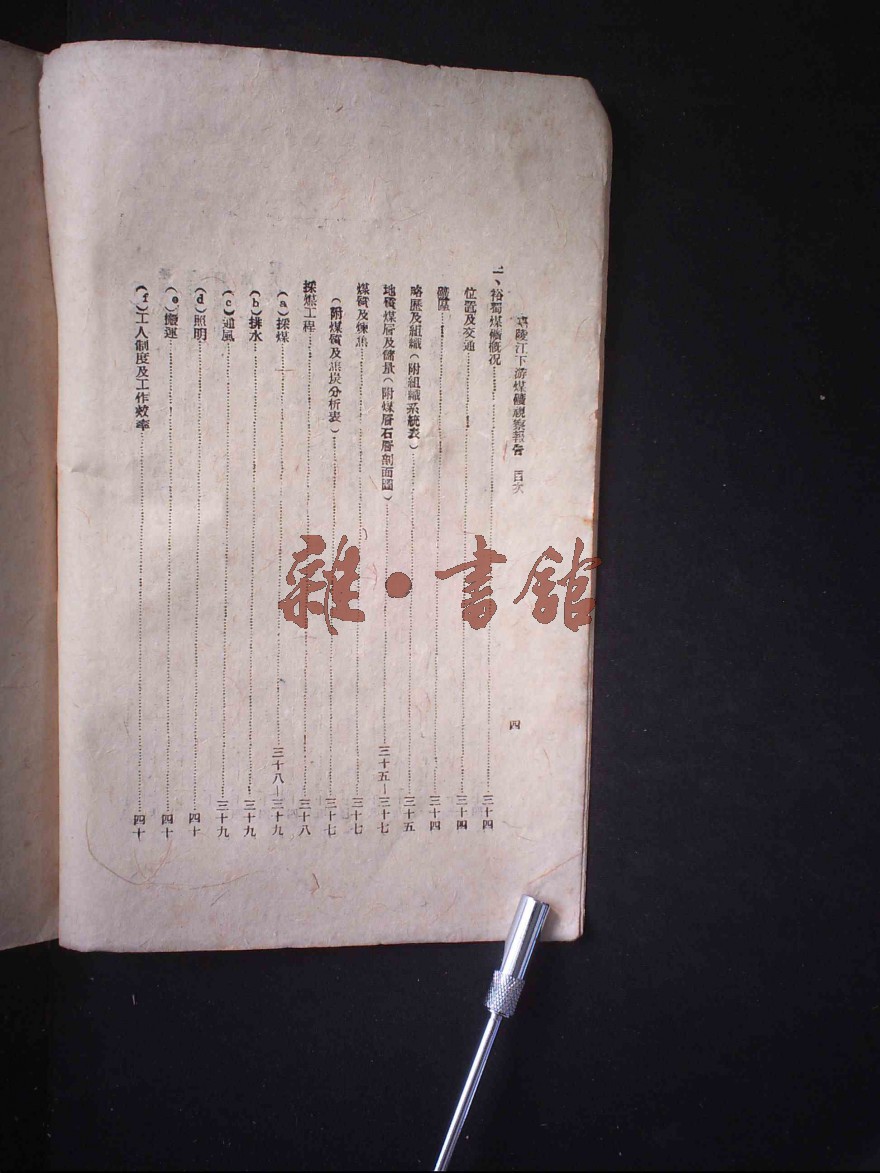 嘉陵江下游煤礦視察報告 目次 四
二、裕蜀煤礦概况……三十四
位置及交通……三十四
礦區……三十四
略歷及組織(附組織系統表)……三十五
地質煤層及儲量(附煤層石層剖面圖)……三十五—三十七
煤質及煉焦……三十七
(附煤質及焦炭分析表)……三十七
採煤工程……三十八
(a)採煤……三十八—三十九
(b)排水……三十九
(c)通風……三十九
(d)照明……四十
(e)搬運……四十
(f)工人制度及工作效率……四十
雜·書館